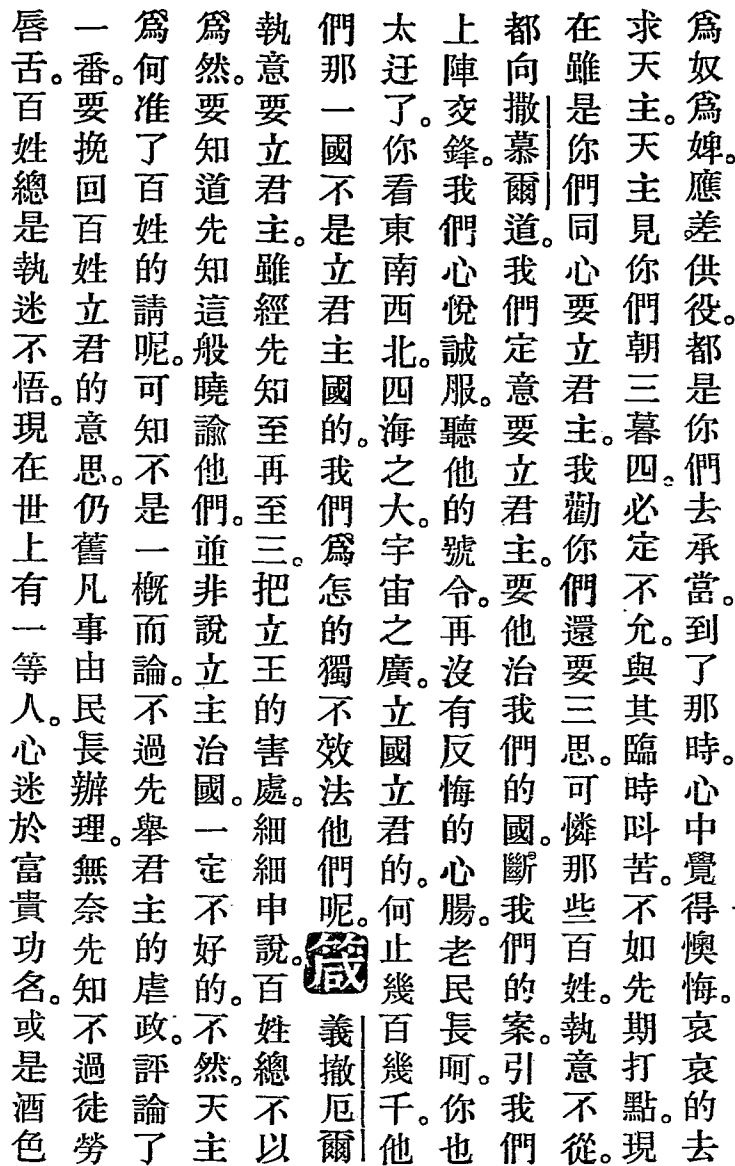 爲奴爲婢。應差供役。都是你們去承當。到了那時。心中覺得懊悔。哀哀的去
求天主。天主見你們朝三暮四。必定不允。與其臨時叫苦。不如先期打點。現
在雖是你們同心要立君主。我勸你們還要三思。可憐那些百姓。執意不從。
都向撒慕爾道。我們定意要立君主。要他治我們的國。斷我們的案。引我們
上陣交鋒。我們心悅誠服。聽他的號令。再沒有反悔的心腸。老民長呵。你也
太迂了。你看東南西北。四海之大。宇宙之廣。立國立君的。何止幾百幾千。他
們那一國不是立君主國的。我們爲怎的獨不效法他們呢。箴義撒厄爾
執意要立君主。雖經先知至再至三。把立王的害處。細細申說。百姓總不以
爲然。要知道先知這般曉諭他們。並非說立主治國。一定不好的。不然。天主
爲何准了百姓的請呢。可知不是一概而論。不過先舉君主的虐政。評論了
一番。要挽回百姓立君的意思。仍舊凡事由民長辦理。無奈先知不過徒勞
唇舌。百姓總是執迷不悟。現在世上有一等人。心迷於富貴功名。或是酒色